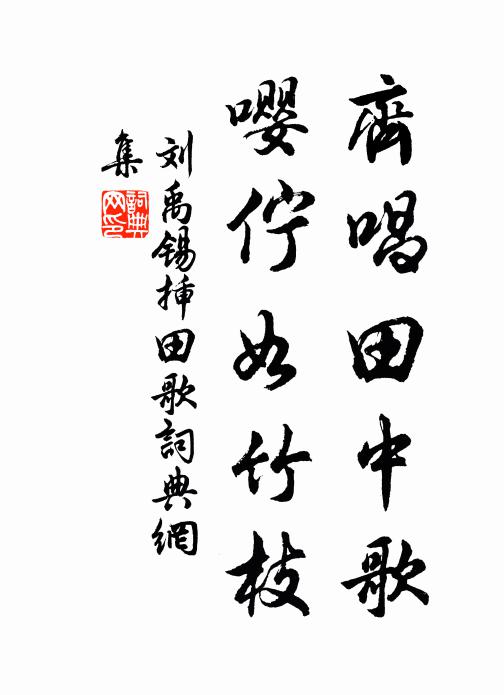 齊唱田中歌
嚶佇如竹枝
刘禹锡揷田歌詞典網
集
詞典
网印